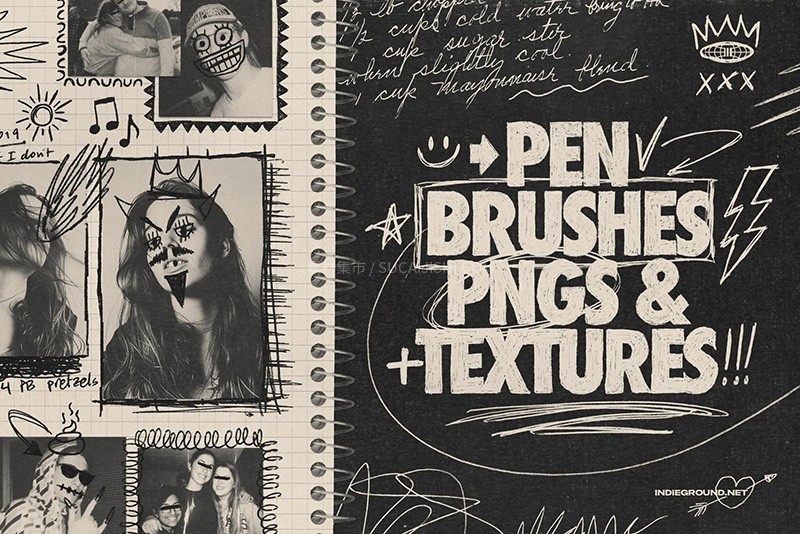 019
I don't
4 PB pretzels
1/2 cups cold water bring to
1 cup sugar stir
when slightly cool
1 cup mayonnaise blend
XXX
PEN
BRUSHES
PNGS &
+TEXTURES!!!
集市 / SUCAI
INDIEGROUND.NET